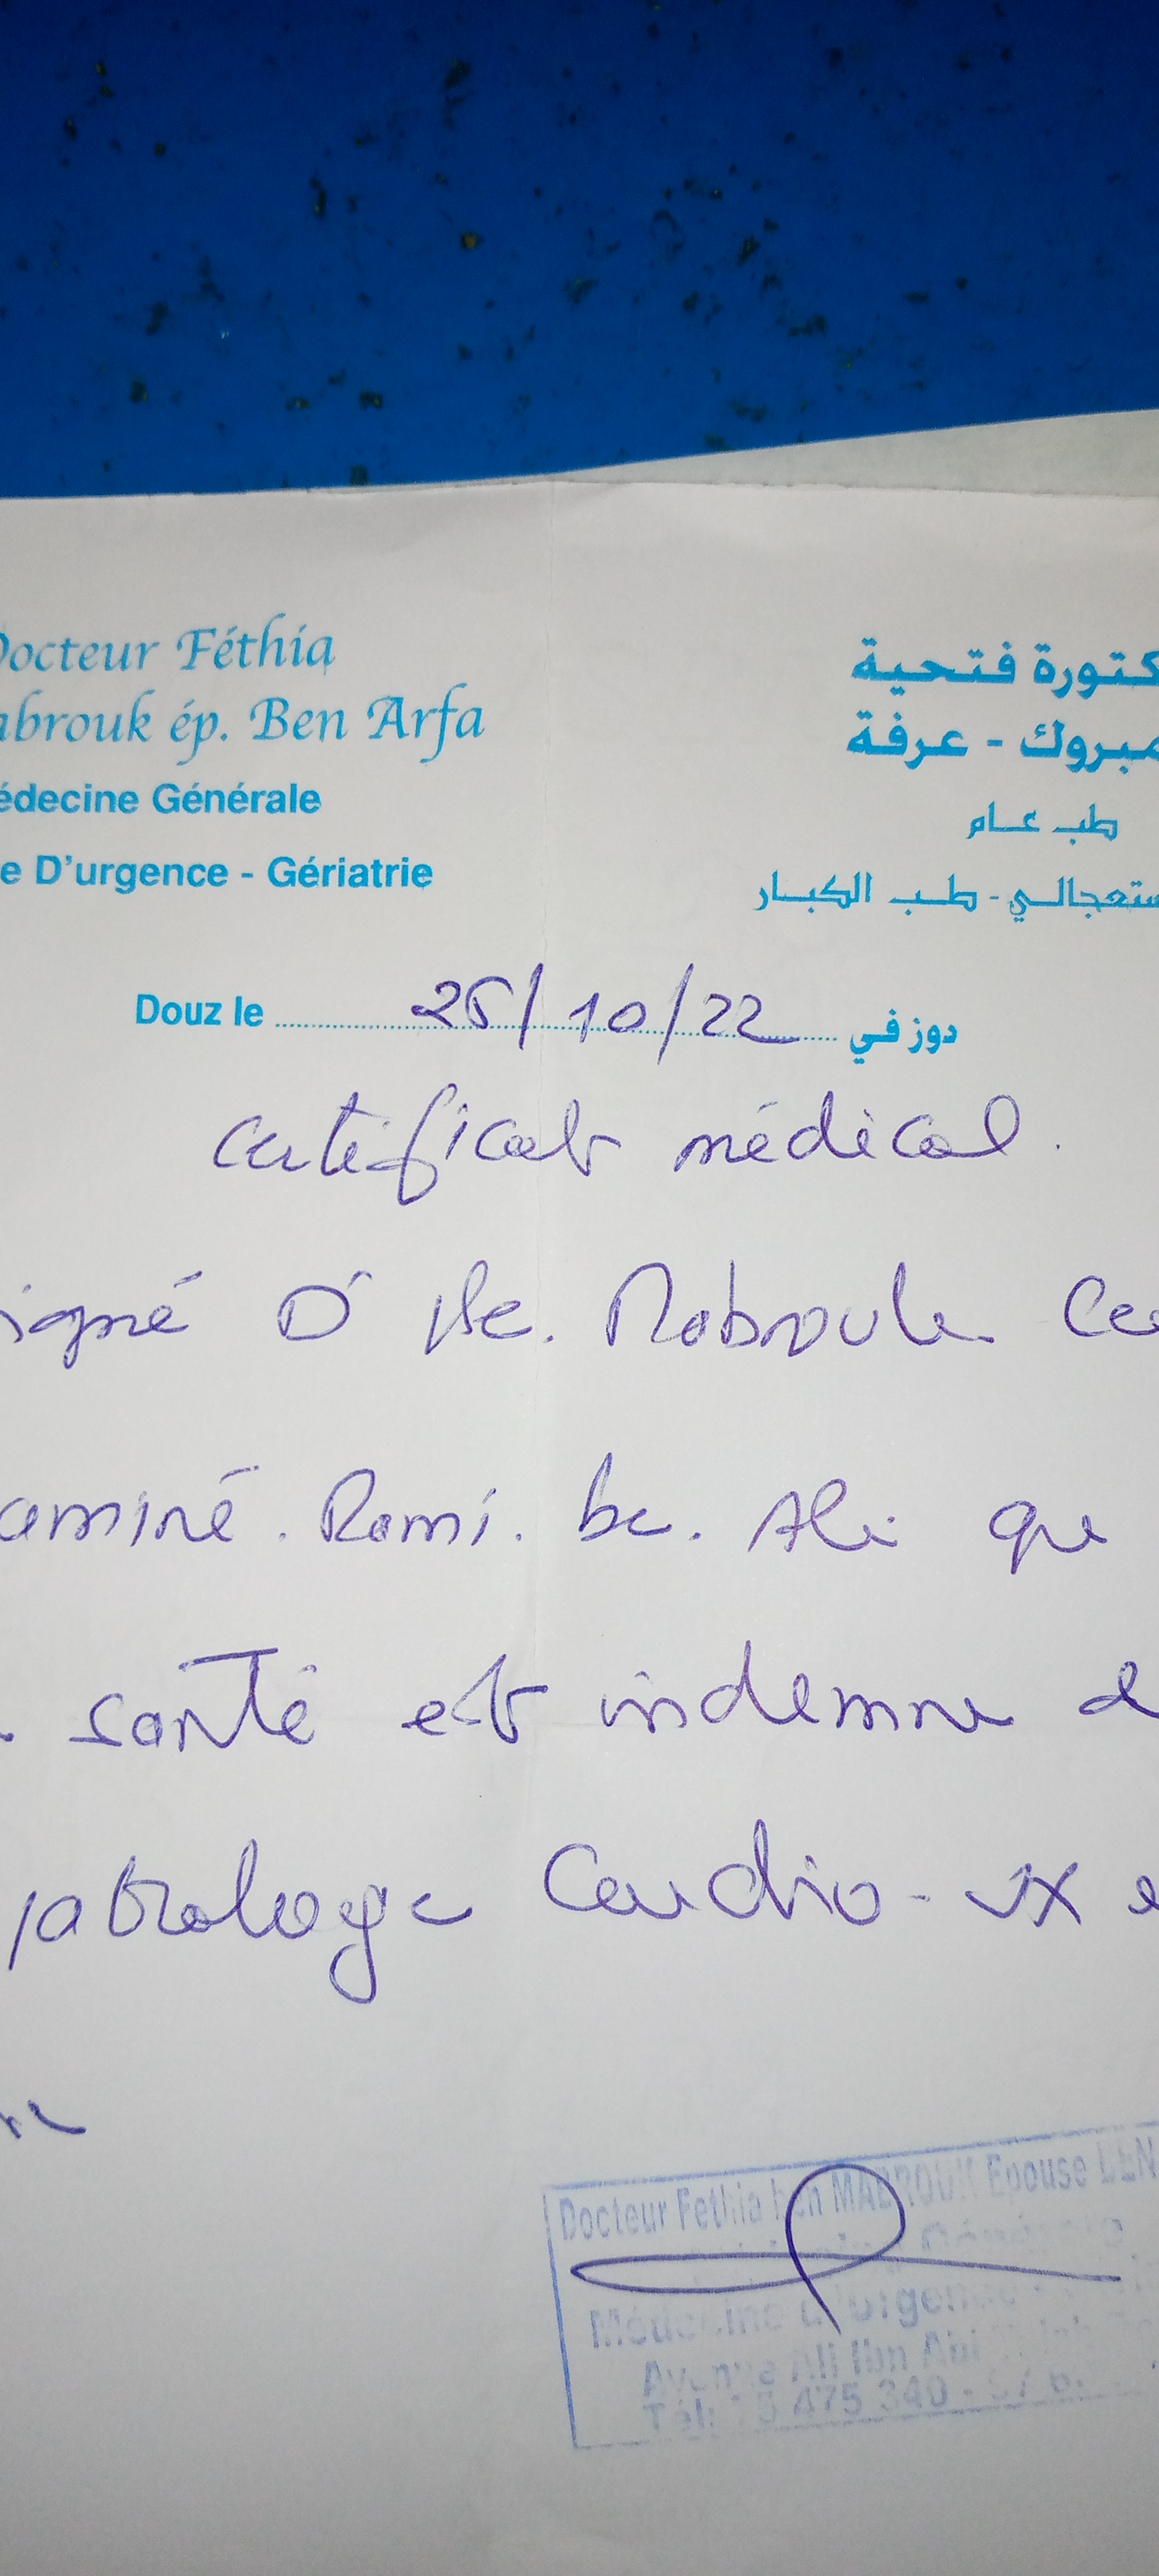 Docteur Féthia
abrouk ép. Ben Arfa
édecine Générale
e D'urgence - Gériatrie
كتورة فتحية
مبروك - عرفة
طب عام
ستعجالي - طب الكبار
Douz le 25/10/22 دوز في
certificat médical.
igné Dr Be. Mabrouk Ce
aminé. Rami. be. Ali que
santé est indemne d
pathologie Cardio-vx e
Docteur Fethia ben MABROUK Epouse BEN
Médecine d'urgence
Avenue Ali Ibn Abi
Tél: 5 475 340